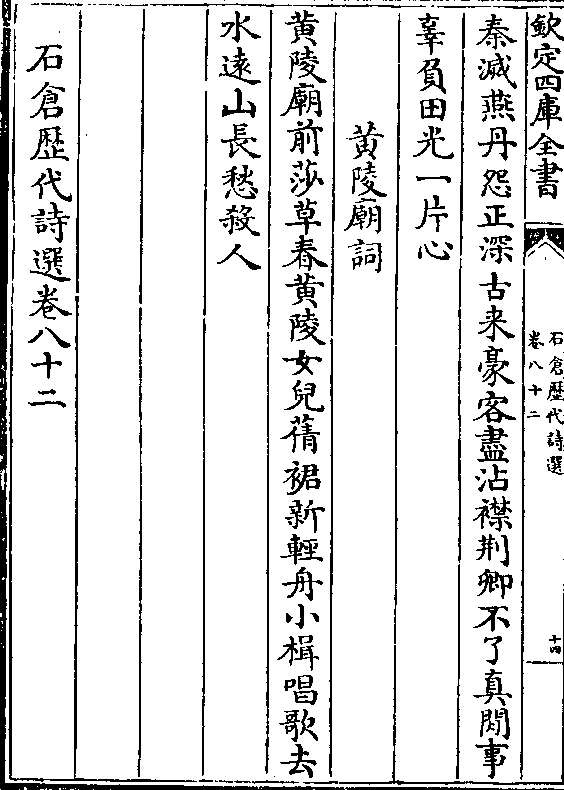 欽定四庫全書
石倉歴代詩選
卷八十二
十四
秦滅燕丹怨正深古来豪客盡沾襟荆卿不了真閒事
辜負田光一片心
黄陵廟詞
黄陵廟前莎草春黄陵女兒蒨裙新輕舟小楫唱歌去
水遠山長愁殺人
石倉歴代詩選卷八十二